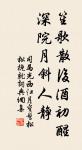 笙歌散後酒初醒
深院月斜人靜
司馬光西江月寶髻松
松挽就詞典網集